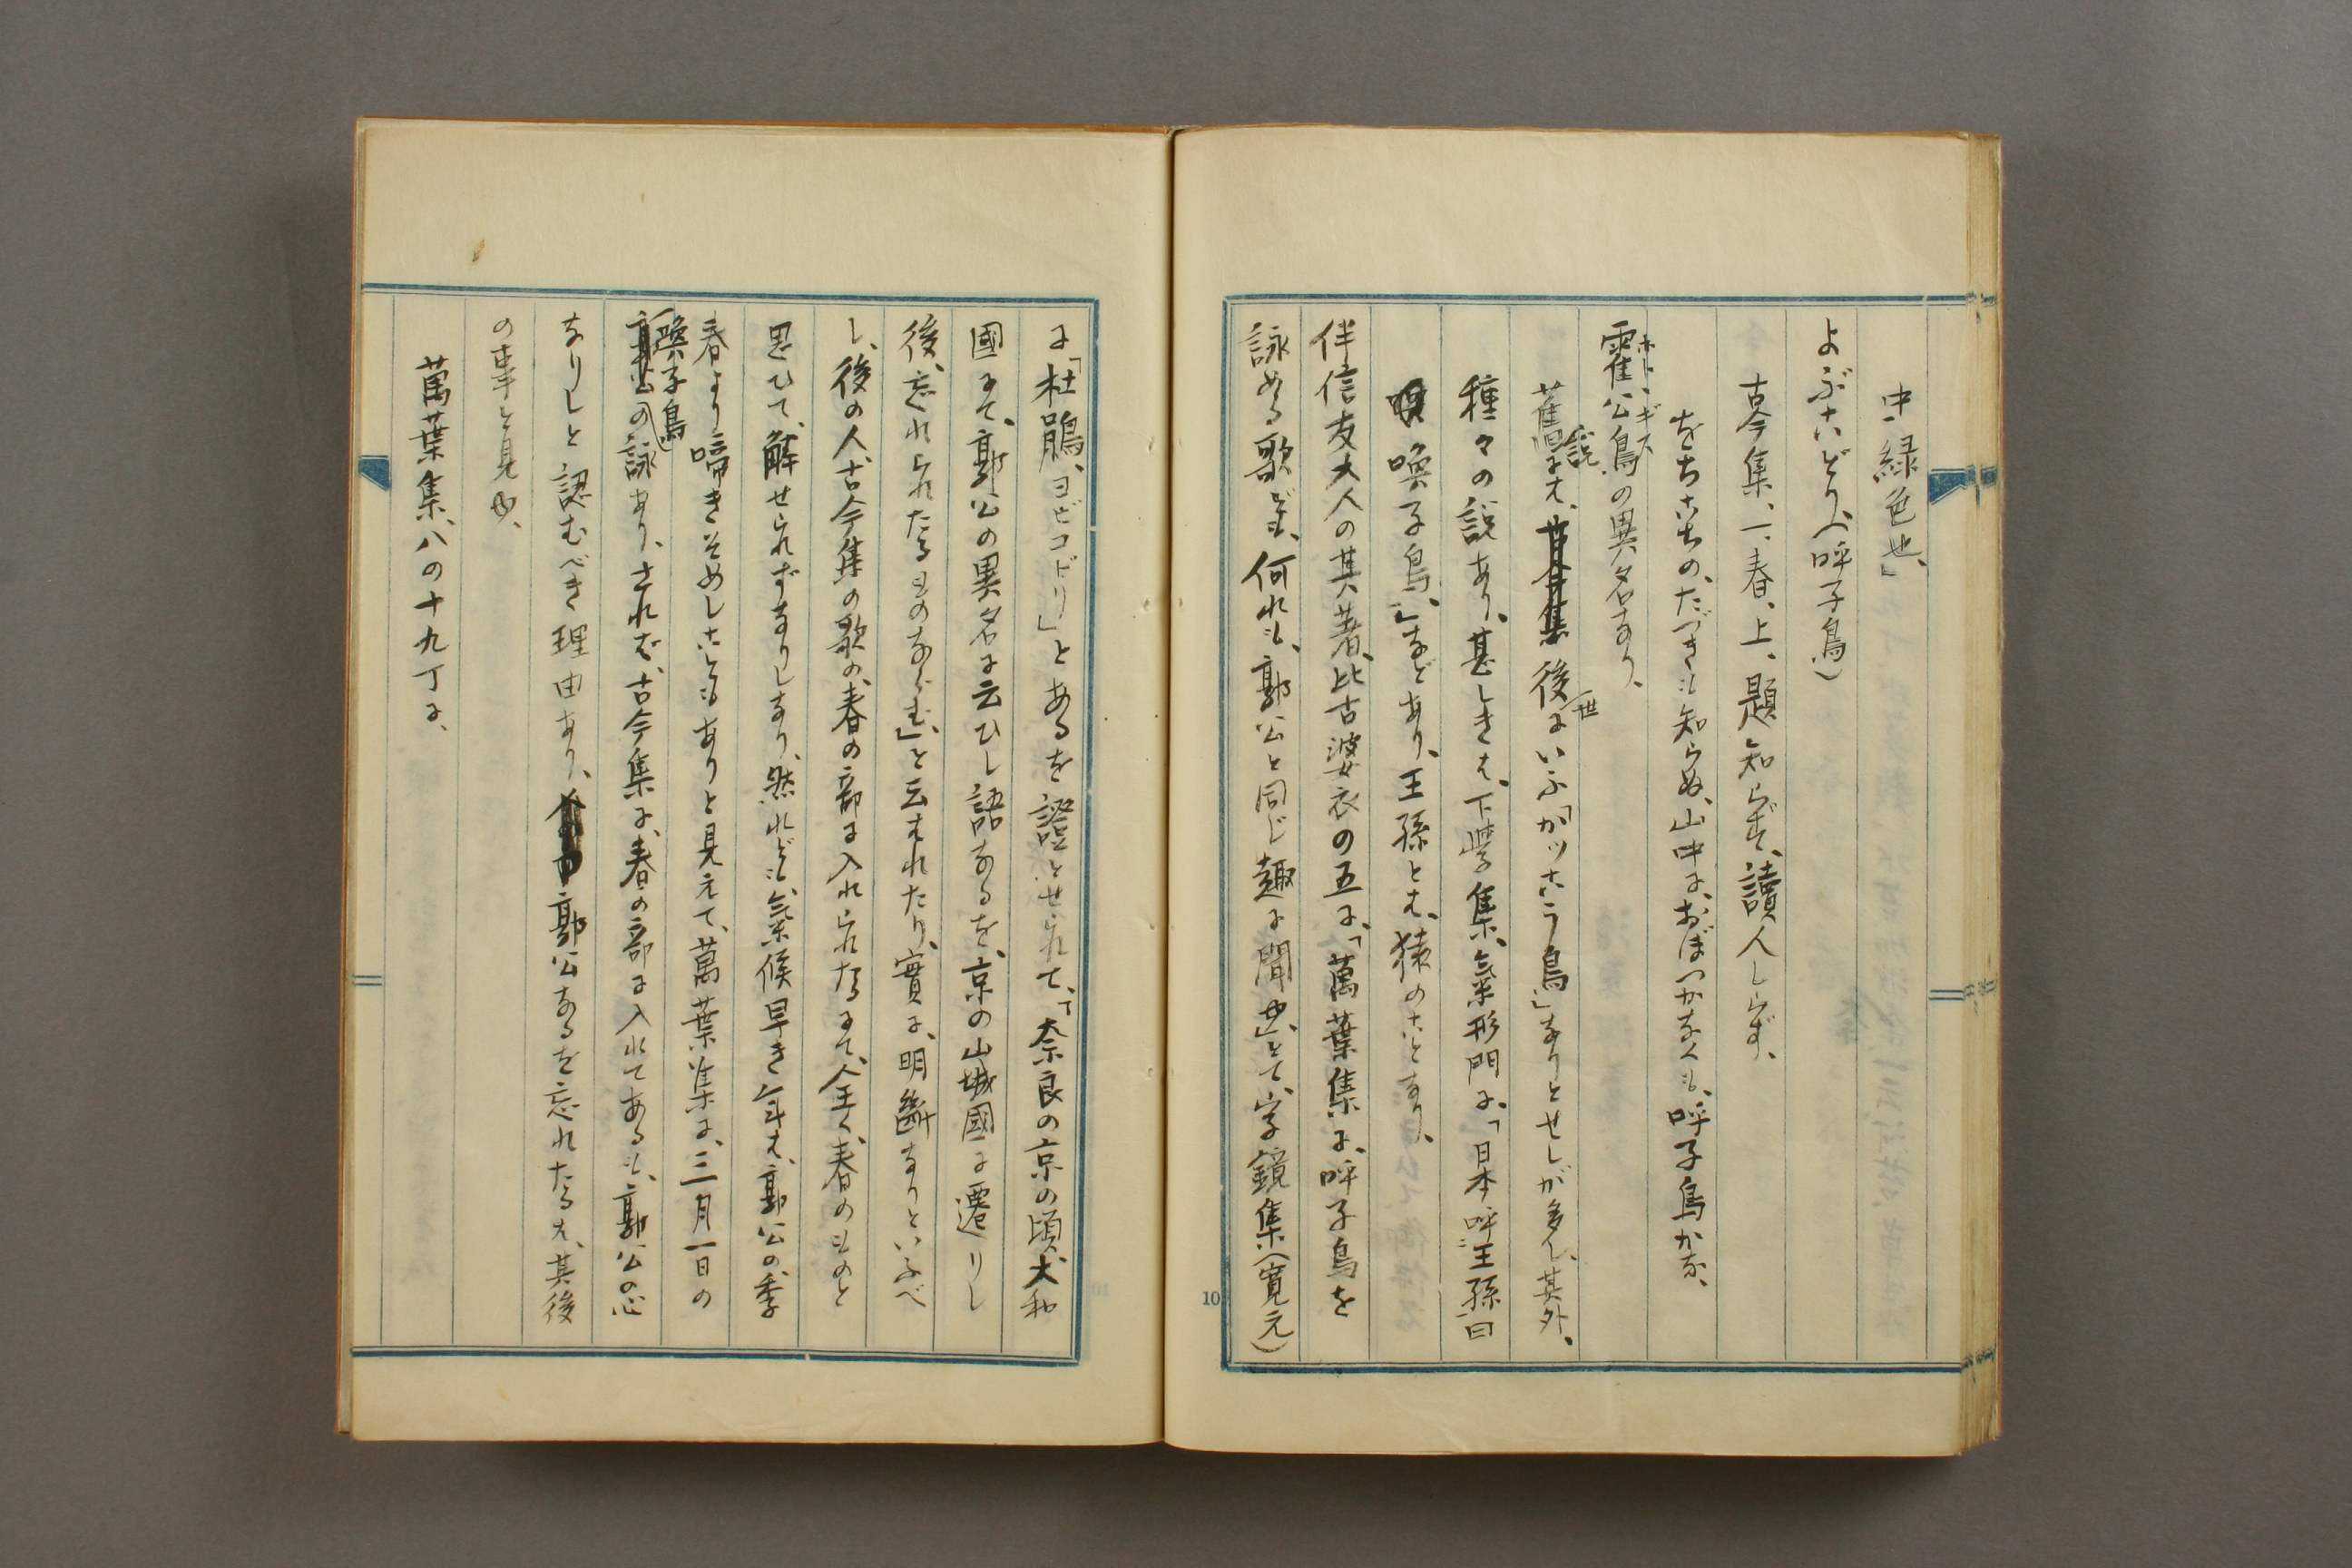 中、緑色也、」
よぶこどり、(呼子鳥)
古今集、一、春、上、題知らず、讀人しらず、
をちこちの、たづきも知らぬ、山中に、おぼつかなくも、呼子鳥かな、
霍公鳥の異名なり、
ホトヽギス
舊説には、後世にいふ「かッこう鳥」なりとせしが多し、其外、
種々の説あり、甚しきは、下學集、氣形門に、「日本呼王孫曰
喚子鳥、」などあり、王孫とは、猿のことなり、
伴信友大人の其著、比古婆衣の五に、「萬葉集に、呼子鳥を
詠める歌ども、何れも、郭公と同じ趣に聞ゆ」とて、字鏡集(寛元)
10
に「杜鵑、ヨビコドリ」とあるを證とせられて、「奈良の京の頃、大和
國にて、郭公の異名に云ひし語なるを、京の山城國に遷りし
後、忘れられたるものならむ、」と云はれたり、實に、明斷なりといふべ
し、後の人、古今集の歌の、春の部に入れられたるにて、全く、春のものと
思ひて、解せられずなりしなり、然れども、氣候早き年は、郭公の季
春より啼きそめしこともありと見えて、萬葉集に、三月一日の
喚子鳥の詠あり、されば、古今集に、春の部に入れてあるも、郭公の心
なりしと認むべき理由あり、郭公なるを忘れたるは、其後
の事と見ゆ、
萬葉集、八の十九丁に、